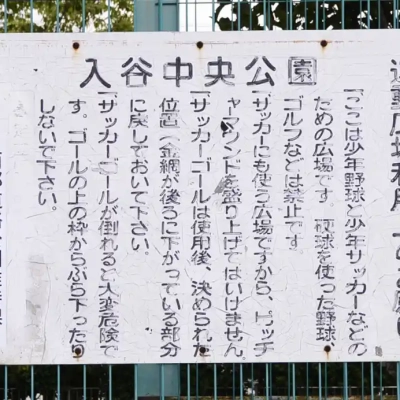 入谷中央公園
一ここは少年野球と少年サッカーなどの
ための広場です。硬球を使った野球、
ゴルフなどは禁止です。
一サッカーにも使う広場ですから、ピッチ
ャマウンドを盛り上げてはいけません。
一サッカーゴールは使用後、決められた
位置（金網が後ろに下がっている部分
に戻しておいて下さい。
一サッカーゴールが倒れると大変危険で
す。ゴールの上の枠からぶら下ったり
しないで下さい。